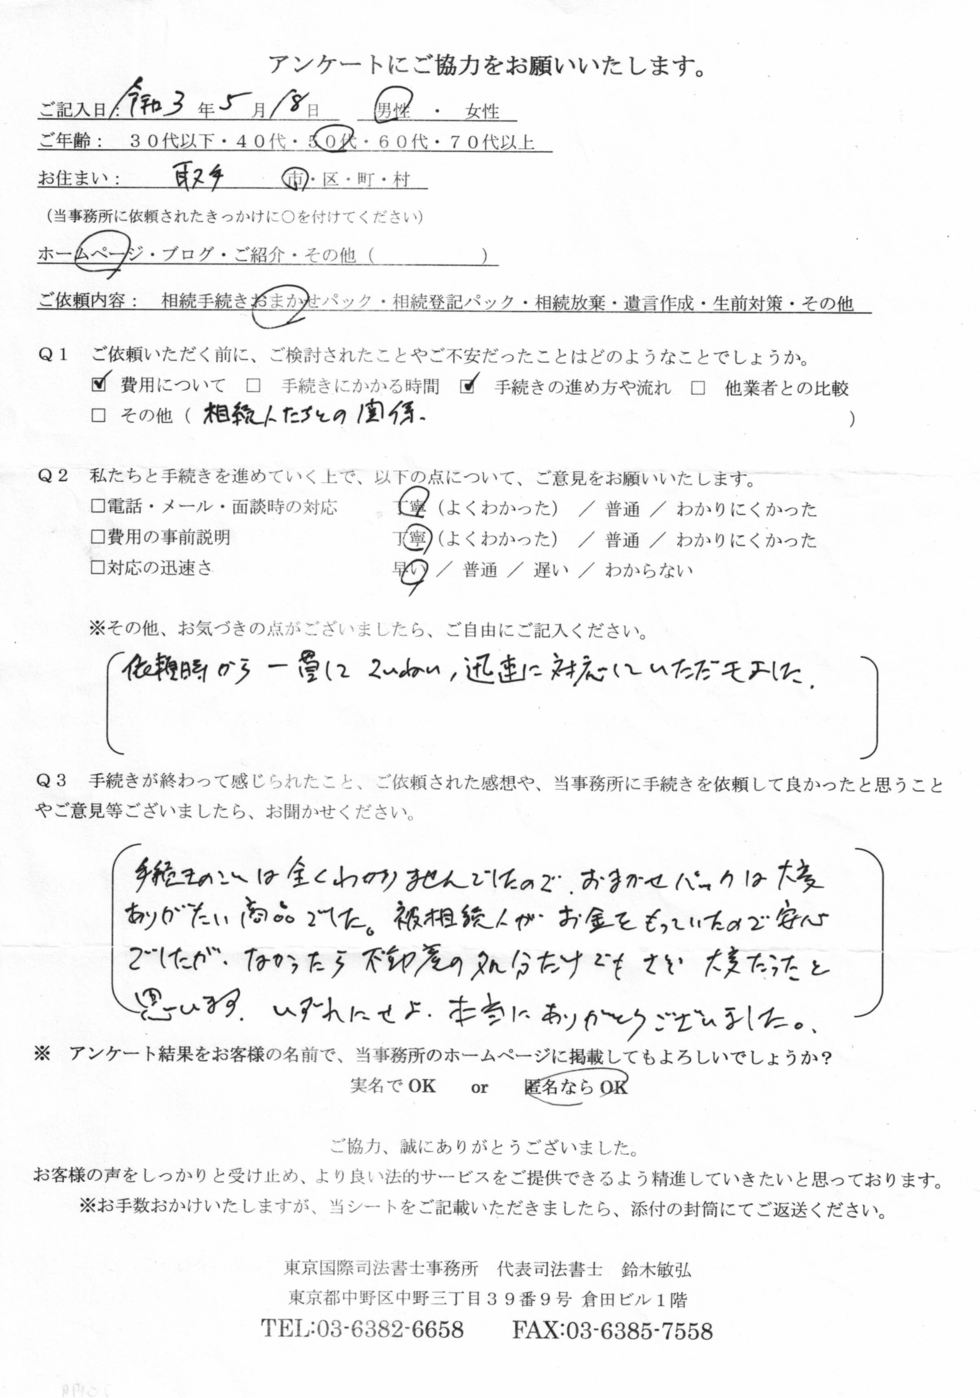 アンケートにご協力をお願いいたします。
ご記入日:令和3年5月18日 男性 ・ 女性
ご年齢: 30代以下・40代・50代・60代・70代以上
お住まい: 取手 市・区・町・村
(当事務所に依頼されたきっかけに○を付けてください)
ホームページ・ブログ・ご紹介・その他( )
ご依頼内容: 相続手続きおまかせパック・相続登記パック・相続放棄・遺言作成・生前対策・その他
Q1 ご依頼いただく前に、ご検討されたことやご不安だったことはどのようなことでしょうか。
☑ 費用について □ 手続きにかかる時間 ☑ 手続きの進め方や流れ □ 他業者との比較
□ その他( 相続人たちとの関係. )
Q2 私たちと手続きを進めていく上で、以下の点について、ご意見をお願いいたします。
□電話・メール・面談時の対応 丁寧(よくわかった) / 普通 / わかりにくかった
□費用の事前説明 丁寧(よくわかった) / 普通 / わかりにくかった
□対応の迅速さ 早い / 普通 / 遅い / わからない
※その他、お気づきの点がございましたら、ご自由にご記入ください。
依頼時から一貫してていねい,迅速に対応していただきました.
Q3 手続きが終わって感じられたこと、ご依頼された感想や、当事務所に手続きを依頼して良かったと思うこと
やご意見等ございましたら、お聞かせください。
手続きのことは全くわかりませんでしたので、おまかせパックは大変
ありがたい商品でした。被相続人がお金をもっていたので安心
でしたが、なかったら不動産の処分だけでもさぞ大変だったと
思います. いずれにせよ、本当にありがとうございました。
※ アンケート結果をお客様の名前で、当事務所のホームページに掲載してもよろしいでしょうか?
実名でOK or 匿名ならOK
ご協力、誠にありがとうございました。
お客様の声をしっかりと受け止め、より良い法的サービスをご提供できるよう精進していきたいと思っております。
※お手数おかけいたしますが、当シートをご記載いただきましたら、添付の封筒にてご返送ください。
東京国際司法書士事務所 代表司法書士 鈴木敏弘
東京都中野区中野三丁目39番9号 倉田ビル1階
TEL:03-6382-6658 FAX:03-6385-7558